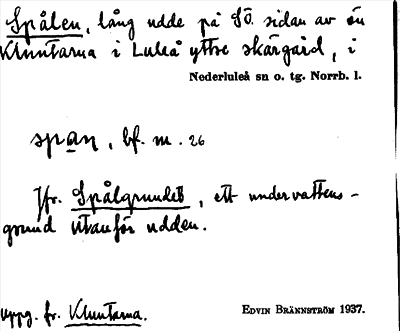 Spålen, lång udde på SÖ. sidan av ön
Kluntarna i Luleå yttre skärgård, i
Nederluleå sn o. tg. Norrb. l.
bf. m. 26
Jfr. Spålgrundet, ett undervattens-
grund utanför udden.
Uppg. fr. Kluntarna.
EDVIN BRÄNNSTRÖM 1937.